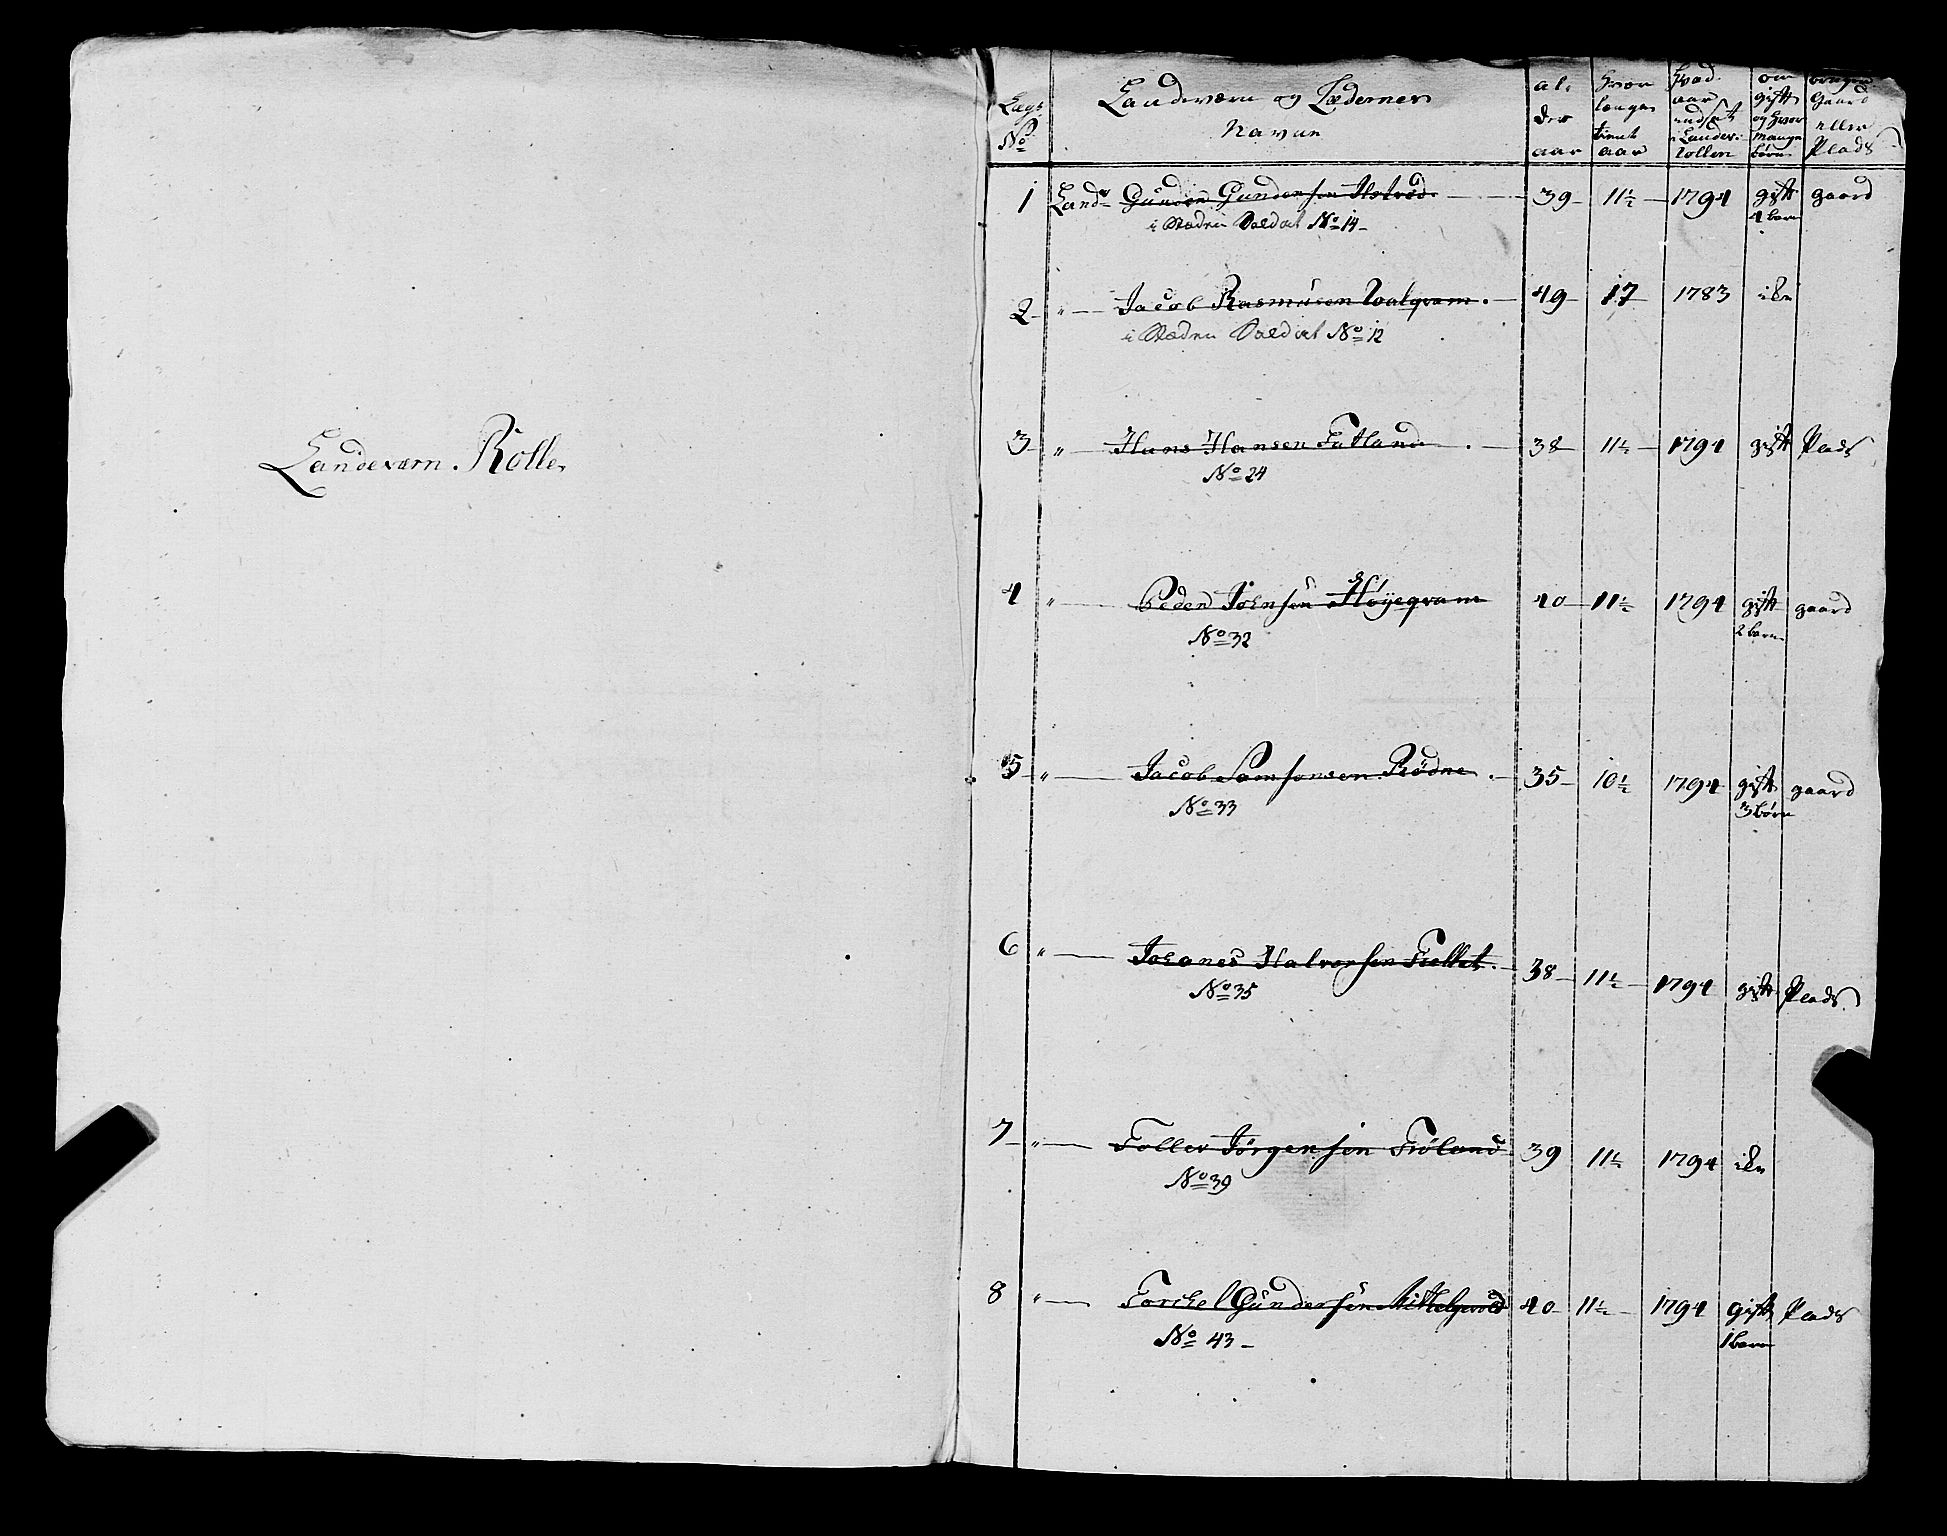 Landeværn Rolle
Lægs No
Landeværn og Lædernes Navne
al-
der
aar
hvor længe tient aar
hvad aar indsat i Landev: rollen
om gift og hvor mange børn
bruger Gaard eller Plads
1 Landv Gunder Gundersen 39 11½ 1794 gift gaard
4 barn
i Stæden Soldat No 14
2 " Jacob Rasmusen Walqvam 49 17 1783 ike
i Stæden Soldat No 12
3 " Hans Hansen Fatland 38 11½ 1794 gift Plads
No 24
4 " Peder Johnsen Høyeqvam 40 11½ 1794 gift gaard
2 barn
No 32
5 " Jacob Samsonsen Rødne 35 10½ 1794 gift gaard
3 børn
No 33
6 " Johanes Halvorsen Fiellet 38 11½ 1794 gift Plads
No 35
7 " Toller Jørgensen Frøland 39 11½ 1794 ike
No 39
8 " Torchel Gundersen 40 11½ 1794 gift Plads
1 barn
No 43